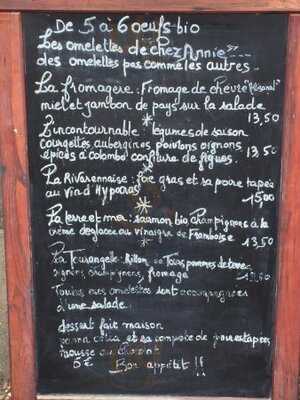 De 5 à 6 oeufs bio
Les omelettes de chez Annie
des omelettes pas comme les autres.
La fromagère: Fromage de chèvre
miel et jambon de pays sur la salade
13,50
L'incontournable: légumes de saison
courgettes aubergines poivrons oignons
épices à colombo confiture de figues. 13,50
La Rivarennaise: foie gras et sa poire tapée
au vin d'Hypocras 15,00
La terre et mer: saumon bio champignons à la
crème déglacé au vinaigre de Framboise
13,50
La Tourangelle: Rillon de Tours pommes de terre
oignons champignons, fromage
Toutes nos omelettes sont accompagnées
d'une salade.
dessert fait maison
panna cotta et sa compotée de poires tapées
mousse au chocolat
5€ Bon appétit !!